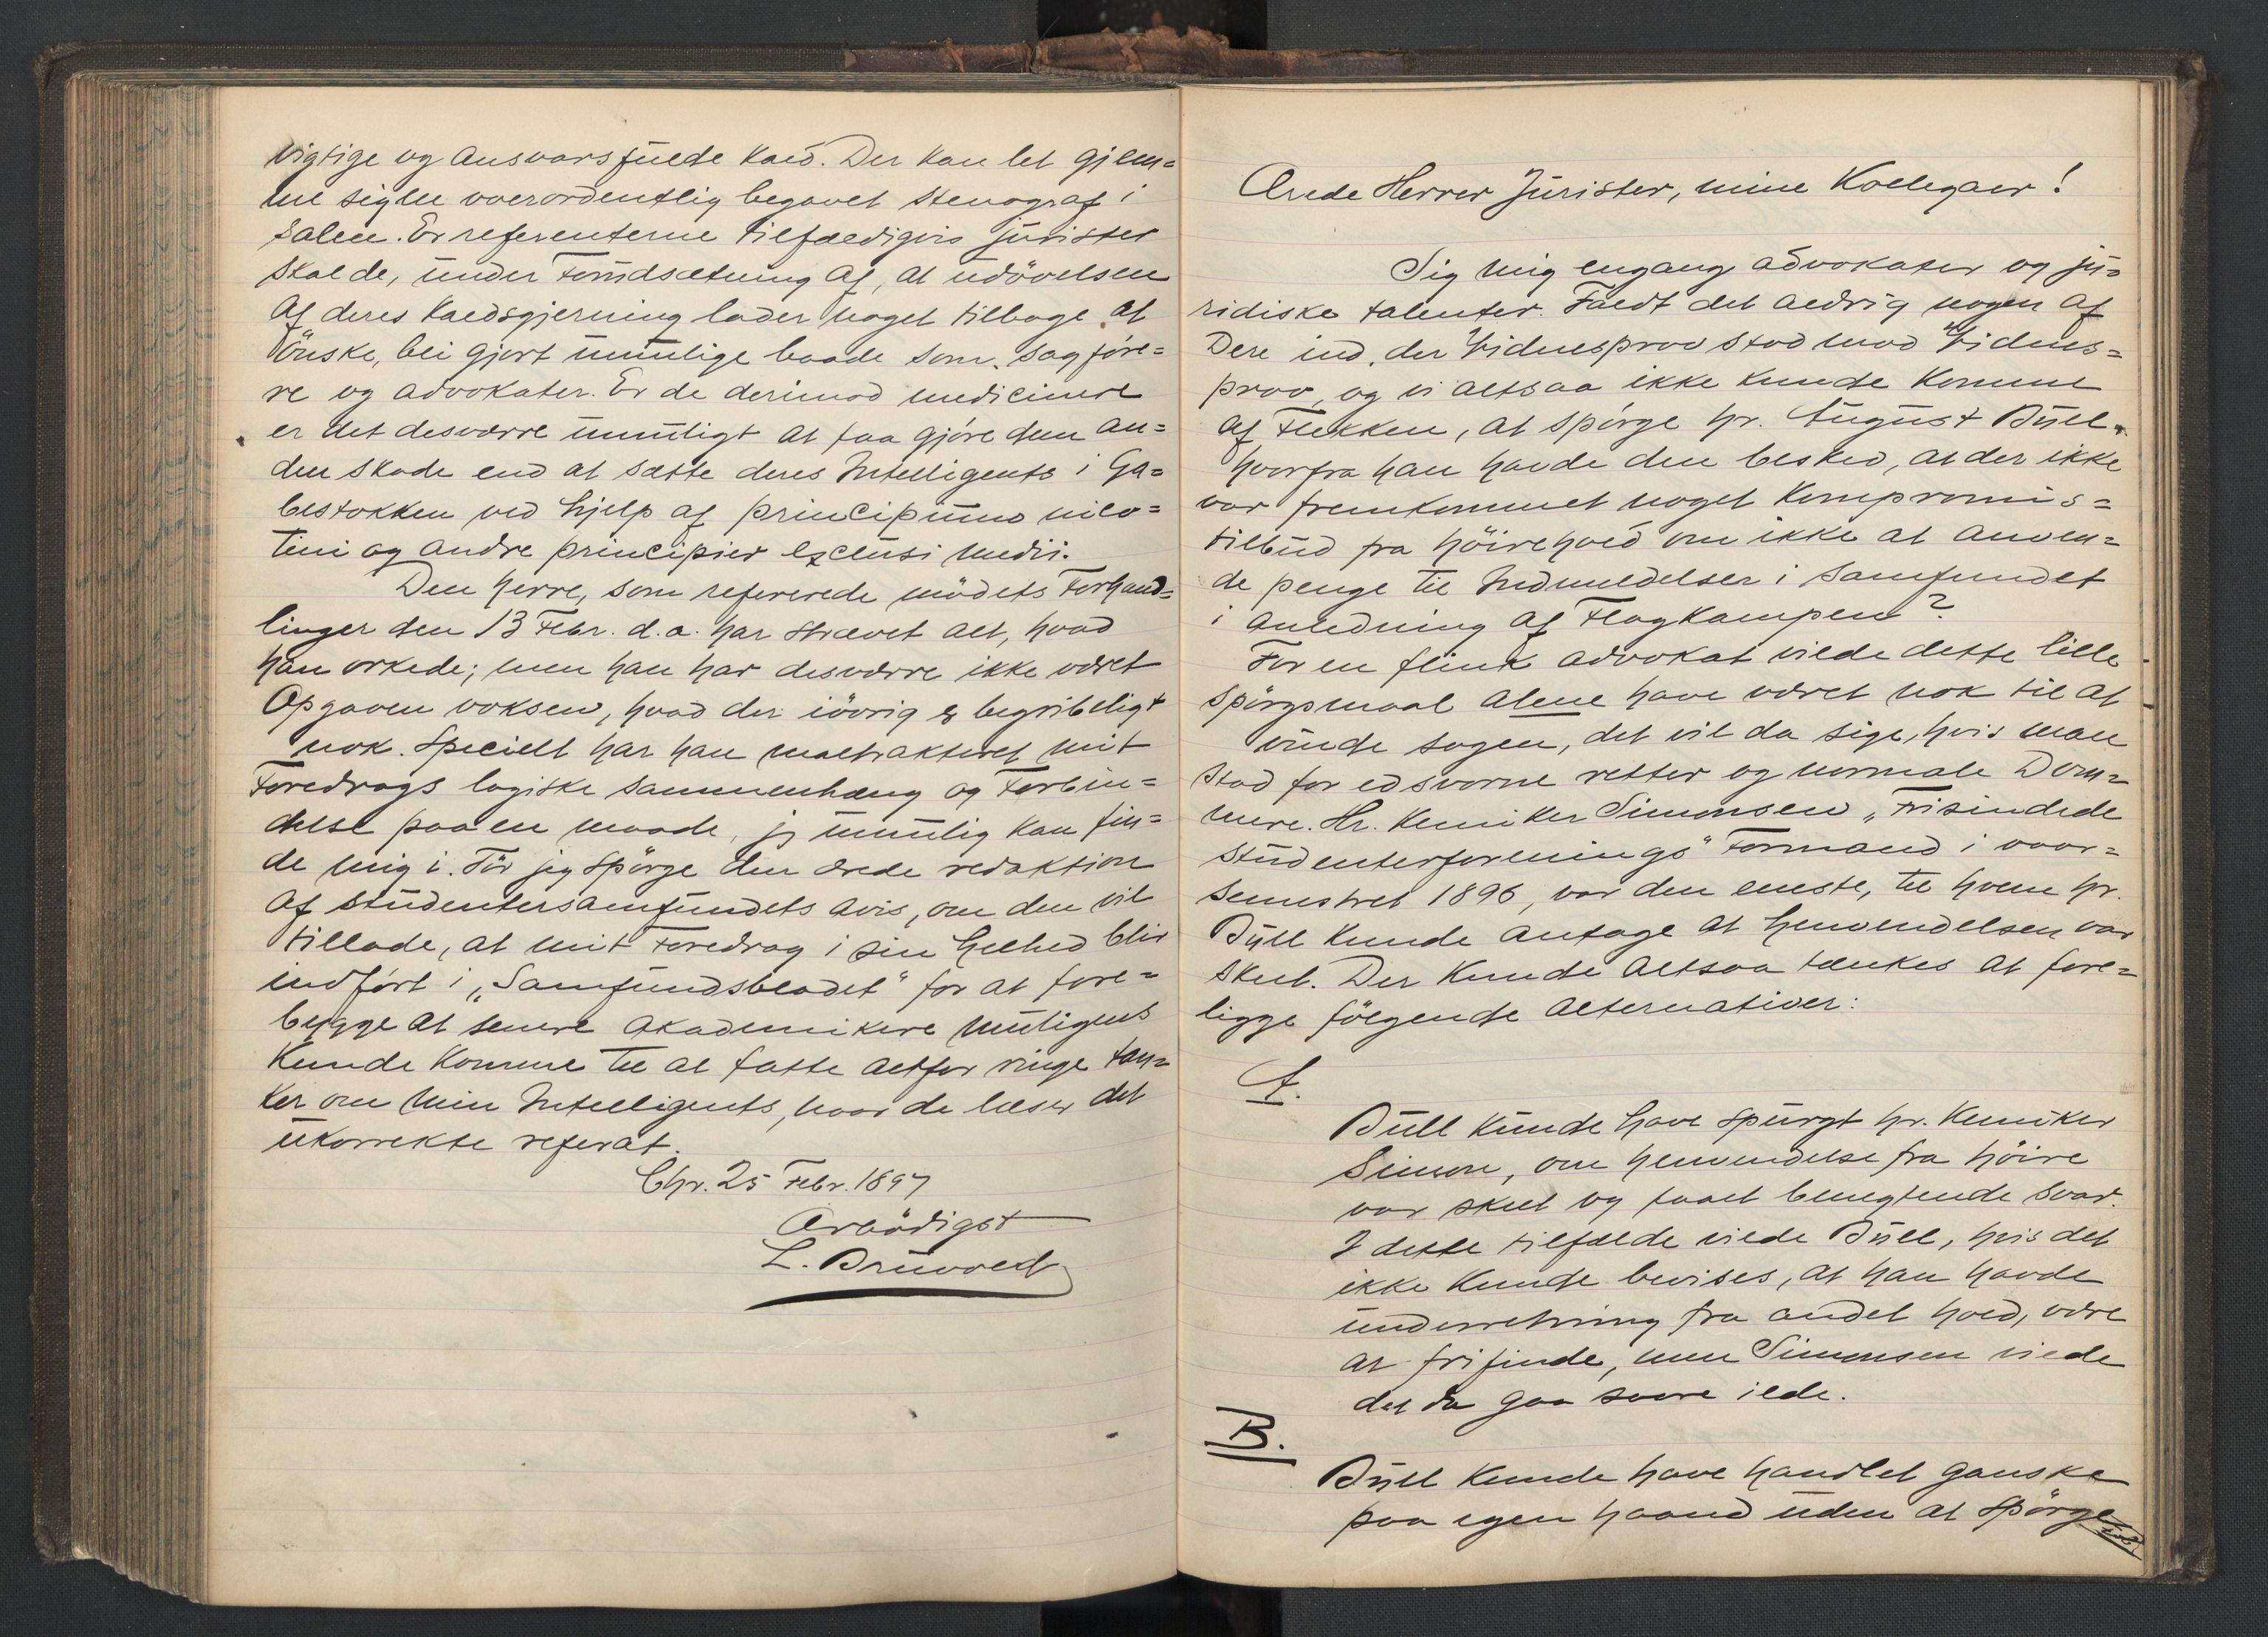 vigtige og ansvarsfulde kald. Der kan let gjem=
me sig en overordentlig begavet Stenograf i
salen. Er referenterne tilfældigvis jurister
skal de, under Forudsætning af, at udövelsen
af deres kaldsgjerning lader noget tilbage at
önske, bli gjort umulige baade som sagföre=
re og advokater. Er de derimod medicinere
er det desværre umuligt at faa gjöre dem an=
den skade end at sætte deres Intelligents i Ga=
bestokken ved hjelp af principiums nico=
tini og andre principier exclusi medii.
Den herre, som refererede mödets Forhand=
linger den 13 Febr. d.a. har strævet alt, hvad
han orkede; men han har desværre ikke været
Opgaven voksen, hvad der iövrig er begribeligt
nok. Specielt har han maltrakteret mit
Foredrags logiske sammenhæng og Forbin=
delse paa en maade, jeg umulig kan fin=
de mig i. Tör jeg spörge den ærede redaktion
af studentersamfundets avis, om den vil
tillade, at mit Foredrag i sin helhed blir
indfört i „Samfundsbladet" for at fore=
bygge at senere akademikere muligens
kunde komme til at fatte altfor ringe tan=
ker om min Intelligents, naar de læser det
ukorrekte referat.
Chr. 25 Febr. 1897
Ærbödigst
L. Bruvoed
Ærede Herrer Jurister, mine Kollegaer!
Sig mig engang advokater og ju=
ridiske talenter. Faldt det aldrig nogen af
Dere ind, der Vidnesprov stod mod Vidnes=
prov, og vi altsaa ikke kunde komme
af Flekken, at spörge hr. August Büll.
hvorfra han havde den besked, at der ikke
var fremkommet noget kompromis=
tilbud fra höirehold om ikke at anven=
de penge til Indmeldelser i Samfundet
i anledning af Flagkampen?
For en flink advokat vilde dette lille
spörgsmaal alene have været nok til at
vinde sagen, det vil da sige, hvis man
stod for edsvorne retter og normale Dom=
mere. Hr. Kemiker Simonsen „Frisindede
studenterforenings" Formand i vaar=
semestret 1896, var den eneste, til hvem hr.
Büll kunde antage at henvendelsen var
skeet. Der kunde altsaa tænkes at fore=
ligge fölgende alternativer:
A.
Büll kunde have spurgt hr. Kemiker
Simon, om henvendelse fra höire
var skeet og faaet benegtende svar.
I dette tilfælde vilde Büll, hvis det
ikke kunde bevises, at han havde
underretning fra andet hold, være
at frifinde, men Simonsen vilde
det da gaa svære ilde.
B.
Büll kunde have handlet ganske
paa egen haand uden at spörge